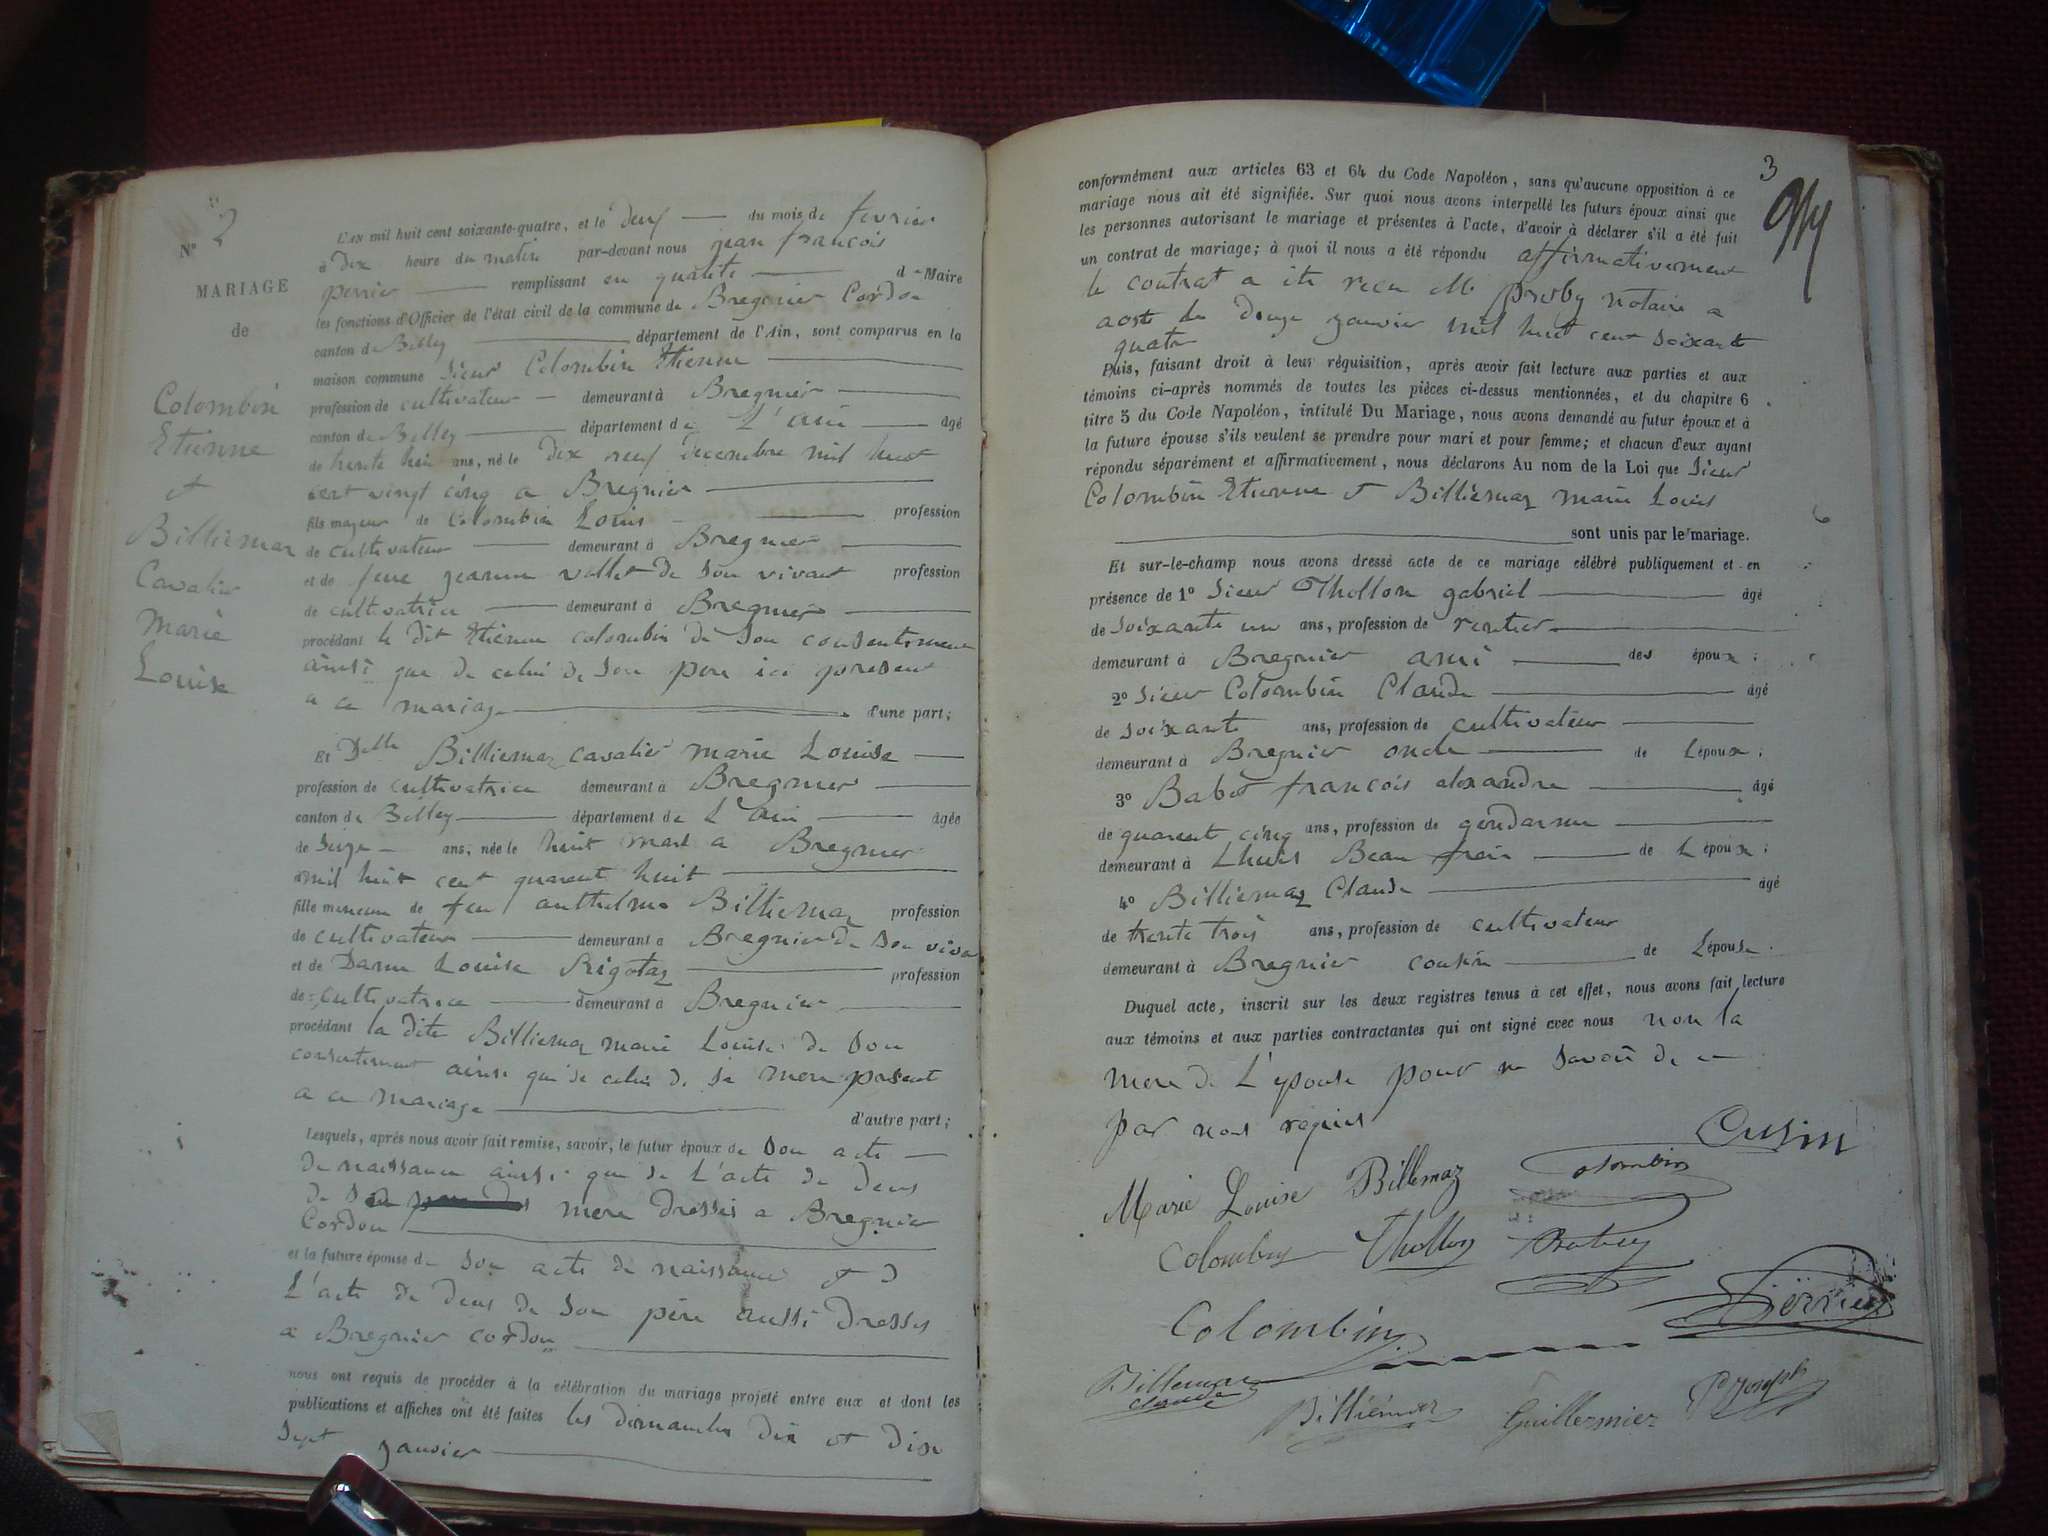 N° 2
MARIAGE
de
Colombin
Etienne
et
Billiemaz
Cavalier
Marie
Louise
L'AN mil huit cent soixante-quatre, et le deux du mois de fevrier
à dix heure du matin par-devant nous jean françois
perrier remplissant en qualité de Maire
les fonctions d'Officier de l'état civil de la commune de Bregnier Cordon
canton de Belley département de l'Ain, sont comparus en la
maison commune Sieur Colombin Etienne
profession de cultivateur demeurant à Bregnier
canton de Belley département de L'ain âgé
de trente huit ans, né le dix neuf decembre mil huit
cent vingt cinq a Bregnier
fils majeur de Colombin Louis profession
de cultivateur demeurant à Bregnier
et de feue jeanne vallet de son vivant profession
de cultivatrice demeurant à Bregnier
procédant le dit Etienne colombin de son consentement
ainsi que de celui de son pere ici present
a ce mariage d'une part;
Et Delle Billiemaz cavalier marie Louise
profession de cultivatrice demeurant à Bregnier
canton de Belley département de L'ain âgée
de seize ans, née le huit mars a Bregnier
mil huit cent quarent huit
fille mineure de feu anthelme Billiemaz profession
de cultivateur demeurant a Bregnier de son viva
et de Dame Louise Rigotaz profession
de cultivatrice demeurant à Bregnier
procédant la dite Billiemaz marie Louise de son
consentement ainsi que de celui de sa mere present
a ce mariage d'autre part;
Lesquels, après nous avoir fait remise, savoir, le futur époux de son acte
de naissance ainsi que de L'acte de deces
de sa mere dressés a Bregnier
Cordon
et la future épouse de son acte de naissance et d
L'acte de deces de son père aussi dressés
a Bregnier cordon
nous ont requis de procéder à la célébration du mariage projeté entre eux et dont les
publications et affiches ont été faites les dimanches dix et dix
sept janvier
3
conformément aux articles 63 et 64 du Code Napoléon, sans qu'aucune opposition à ce
mariage nous ait été signifiée. Sur quoi nous avons interpellé les futurs époux ainsi que
les personnes autorisant le mariage et présentes à l'acte, d'avoir à déclarer s'il a été fait
un contrat de mariage; à quoi il nous a été répondu affirmativement
le contrat a été recu Me notaire a
aoste le douze janvier mil huit cent soixante
quatre
Puis, faisant droit à leur réquisition, après avoir fait lecture aux parties et aux
témoins ci-après nommés de toutes les pièces ci-dessus mentionnées, et du chapitre 6
titre 5 du Code Napoléon, intitulé Du Mariage, nous avons demandé au futur époux et à
la future épouse s'ils veulent se prendre pour mari et pour femme; et chacun d'eux ayant
répondu séparément et affirmativement, nous déclarons Au nom de la Loi que Sieur
Colombin Etienne et Billiemaz marie Louis
sont unis par le mariage.
Et sur-le-champ nous avons dressé acte de ce mariage célébré publiquement et en
présence de 1° Sieur Thollon gabriel âgé
de soixante un ans, profession de rentier
demeurant à Bregnier ami des époux;
2° Sieur Colombin Claude âgé
de soixante ans, profession de cultivateur
demeurant à Bregnier oncle de Lépoux;
3° Babot françois alexandre âgé
de quarent cinq ans, profession de gendarme
demeurant à Lhuis Beau frere de Lépoux;
4° Billiemaz Claude âgé
de trente trois ans, profession de cultivateur
demeurant à Bregnier cousin de Lépouse.
Duquel acte, inscrit sur les deux registres tenus à cet effet, nous avons fait lecture
aux témoins et aux parties contractantes qui ont signé avec nous non la
mere de L'epouse pour ne savoir de ce
par nous requise
Cusin
Marie Louise Billemaz Colombin
Colombin Thollon
Colombin Perrier
Billemaz
Claude
Billiémaz Guillermier P Joseph